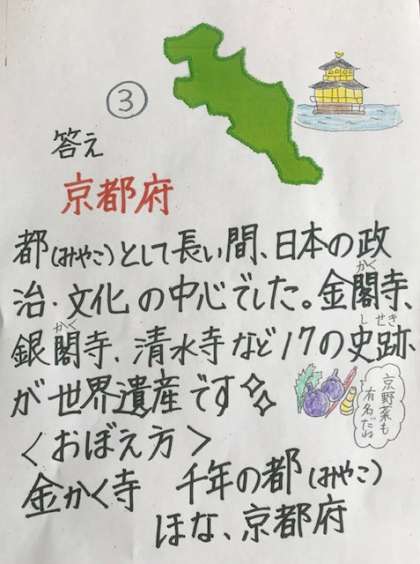 ③
答え
京都府
都(みやこ)として長い間、日本の政
治・文化の中心でした。金閣寺、
かく
銀閣寺、清水寺など17の史跡
かく
しせき
が世界遺産です
京野菜も
有名だね
<おぼえ方>
金かく寺 千年の都(みやこ)
ほな、京都府